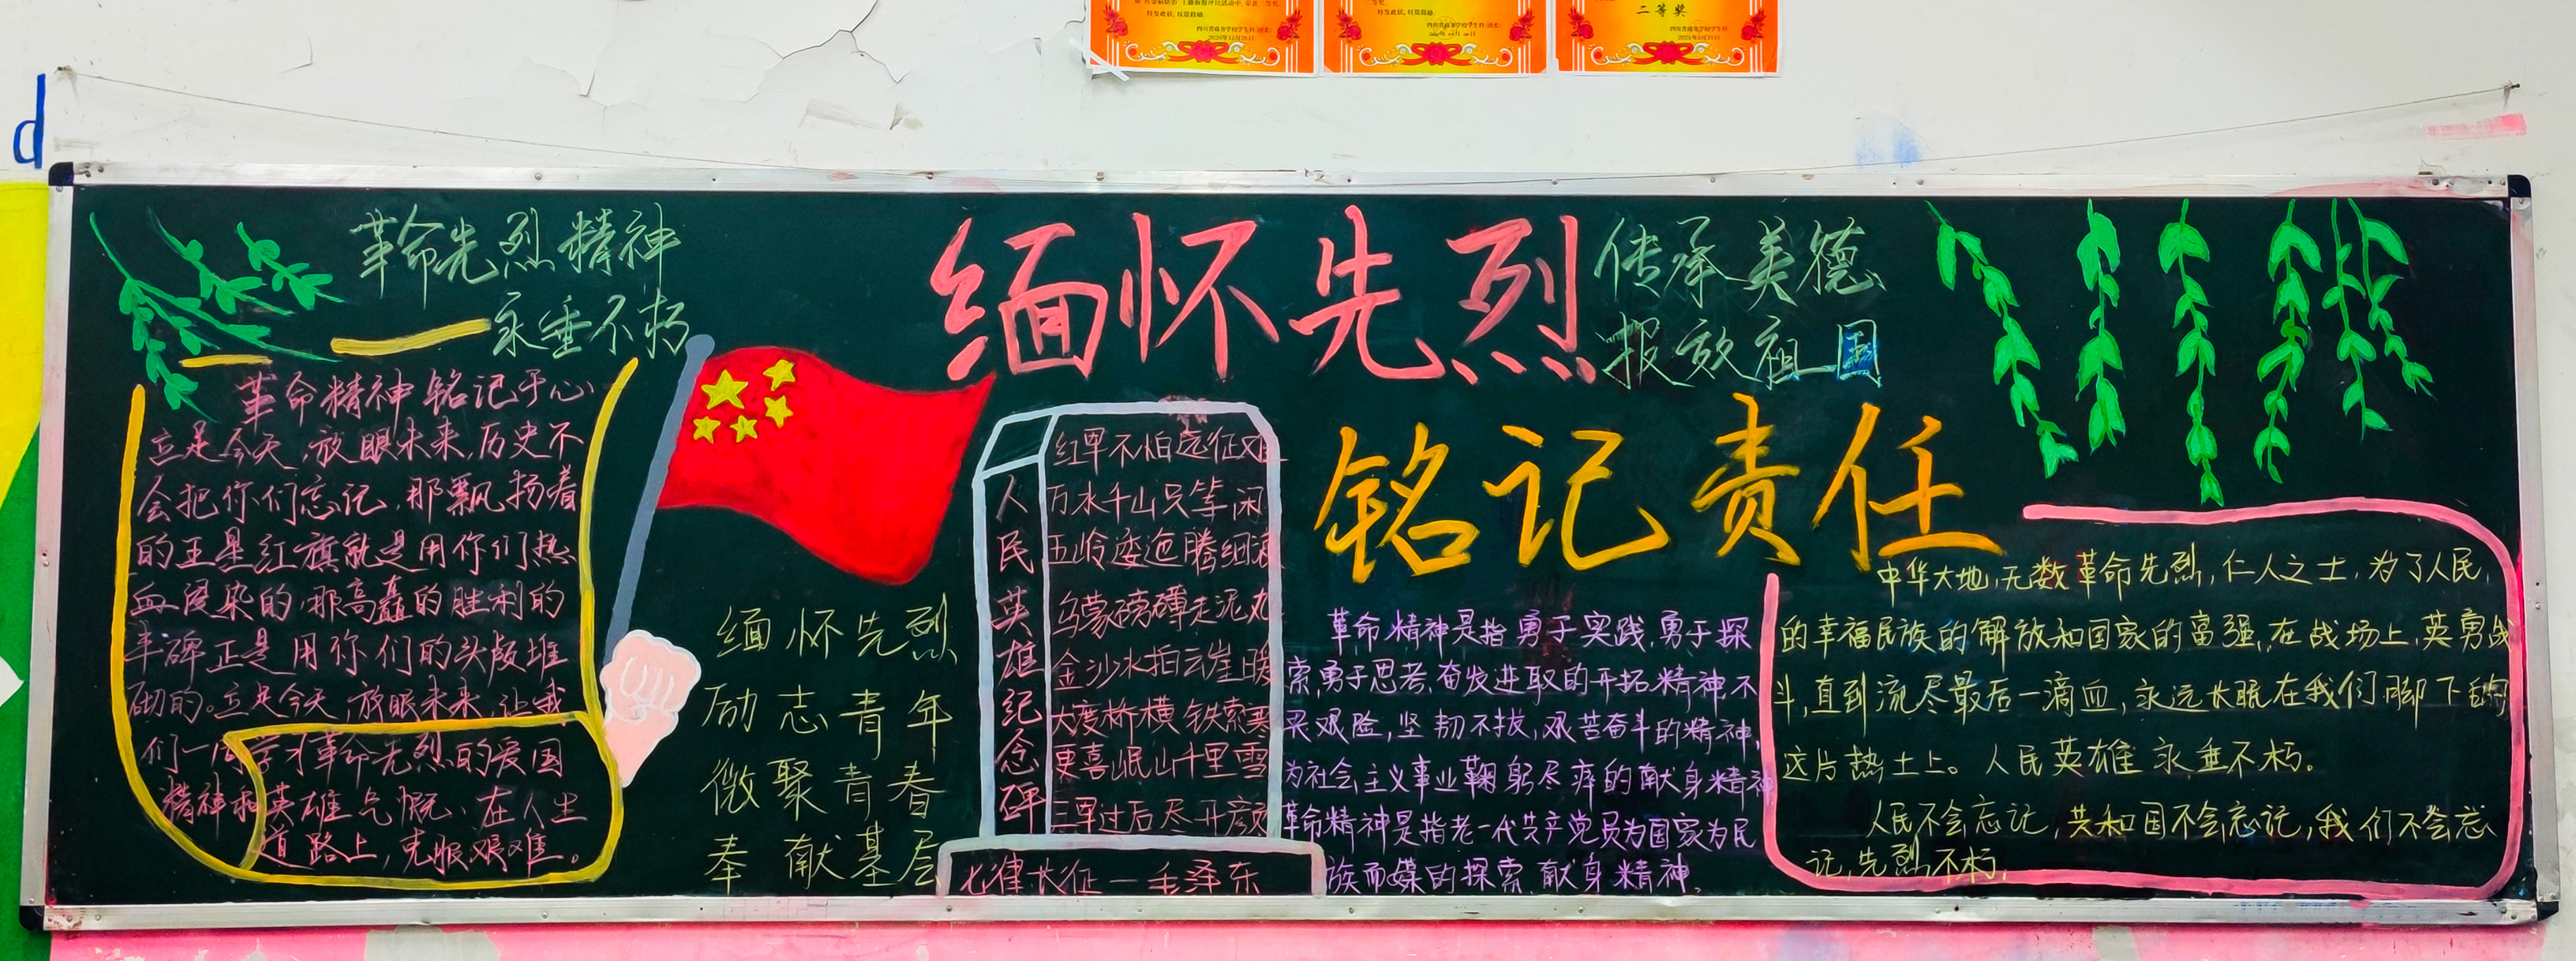 特发此状,以资鼓励.
四川省商务学校学生科(团委)
2020年12月26日
特发此状,以资鼓励.
四川省商务学校学生科(团委)
二等奖
四川省商务学校学生科
d
革命先烈精神
永垂不朽
革命精神铭记于心
立足今天,放眼未来,历史不
会把你们忘记,那飘扬着
的五星红旗就是用你们热
血浸染的,那高矗的胜利的
丰碑正是用你们的头颅堆
砌的。立足今天,放眼未来,让我
们一同学习革命先烈的爱国
精神和英雄气慨、在人生
道路上,克服艰难。
缅怀先烈
励志青年
微聚青春
奉献基层
缅怀先烈
传承美德
报效祖国
铭记责任
人民英雄纪念碑
红军不怕远征难
万水千山只等闲
五岭逶迤腾细浪
乌蒙磅礴走泥丸
金沙水拍云崖暖
大度桥横铁索寒
更喜岷山千里雪
三军过后尽开颜
七律长征—毛泽东
革命精神是指勇于实践,勇于探
索,勇于思考,奋发进取的开拓精神,不
畏艰险,坚韧不拔,艰苦奋斗的精神,
为社会主义事业鞠躬尽瘁的献身精神
革命精神是指老一代共产党员为国家为民
族而媒的探索,献身精神.
中华大地,无数革命先烈,仁人之士,为了人民,
的幸福民族的解放和国家的富强,在战场上,英勇战
斗,直到流尽最后一滴血,永远长眠在我们脚下的
这片热土上。人民英雄永垂不朽。
人民不会忘记,共和国不会忘记,我们不会忘
记,先烈不朽,